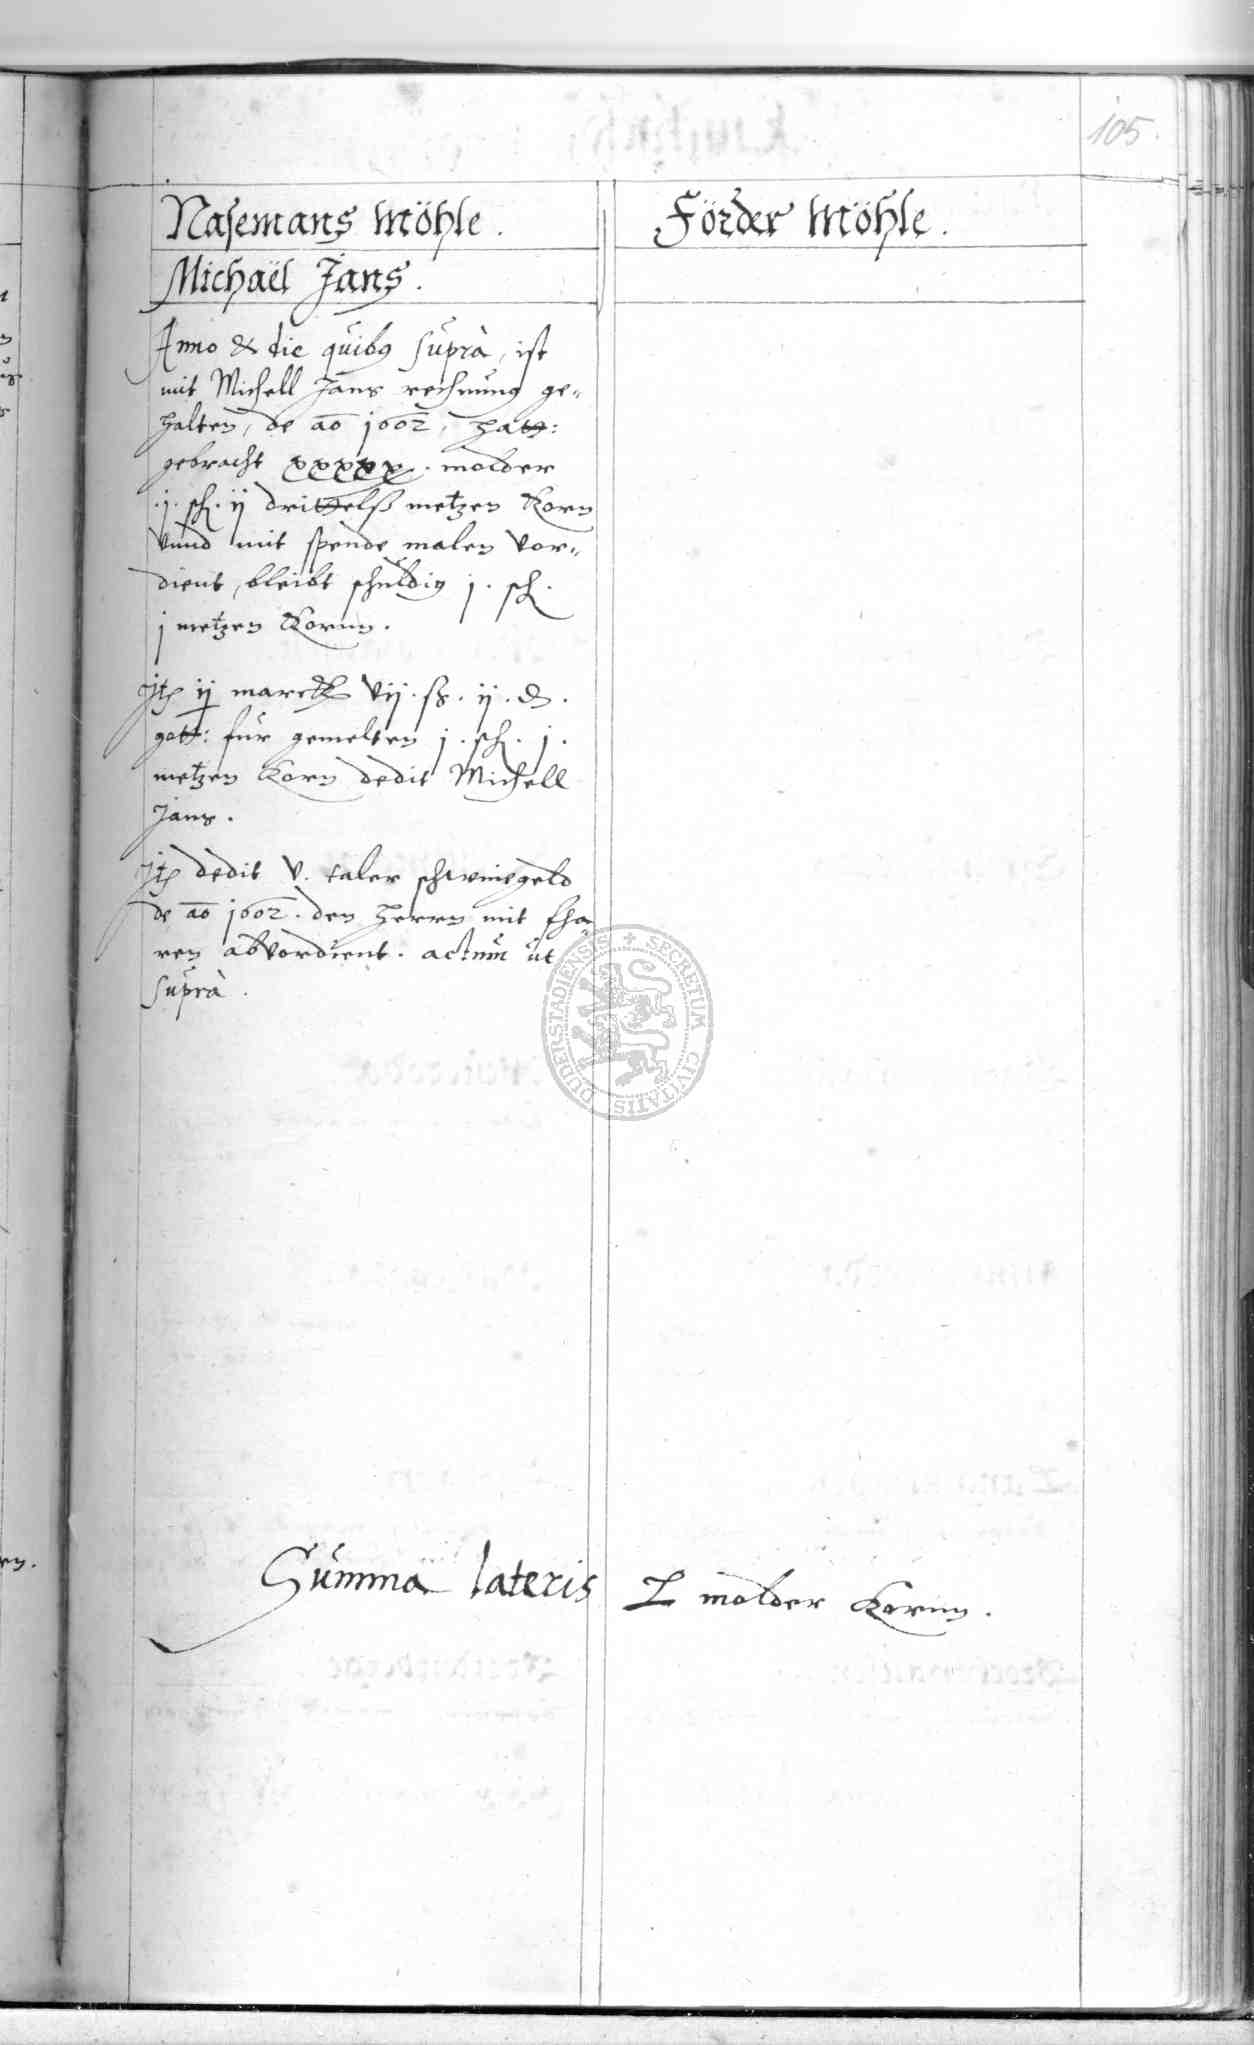 105.
Nasemans Möhle.
Michaël Jans.
Anno & die quibus suprà, ist
mit Michell Jans rechnung ge-
halten, de ao 1602, hatt:
gebracht xxxxx. molder
.j. sch. ij drittelß metzen Korn
vnnd mit spende malen vor-
dient, bleibt schuldig j. sch.
j metzen Kornn.
Jtem ij marck vij. ß. ij. d.
gott: für gemelten j. sch. j.
metzen Korn dedit Michell
Jans.
Jtem dedit v. taler schweinegeld
de ao 1602. den herrn mit fha-
ren abvordient. actum ut
suprà.
Förder Möhle.
Summa lateris L molder Kornn.
SECRETUM CIVITATIS DUDERSTADIENSIS